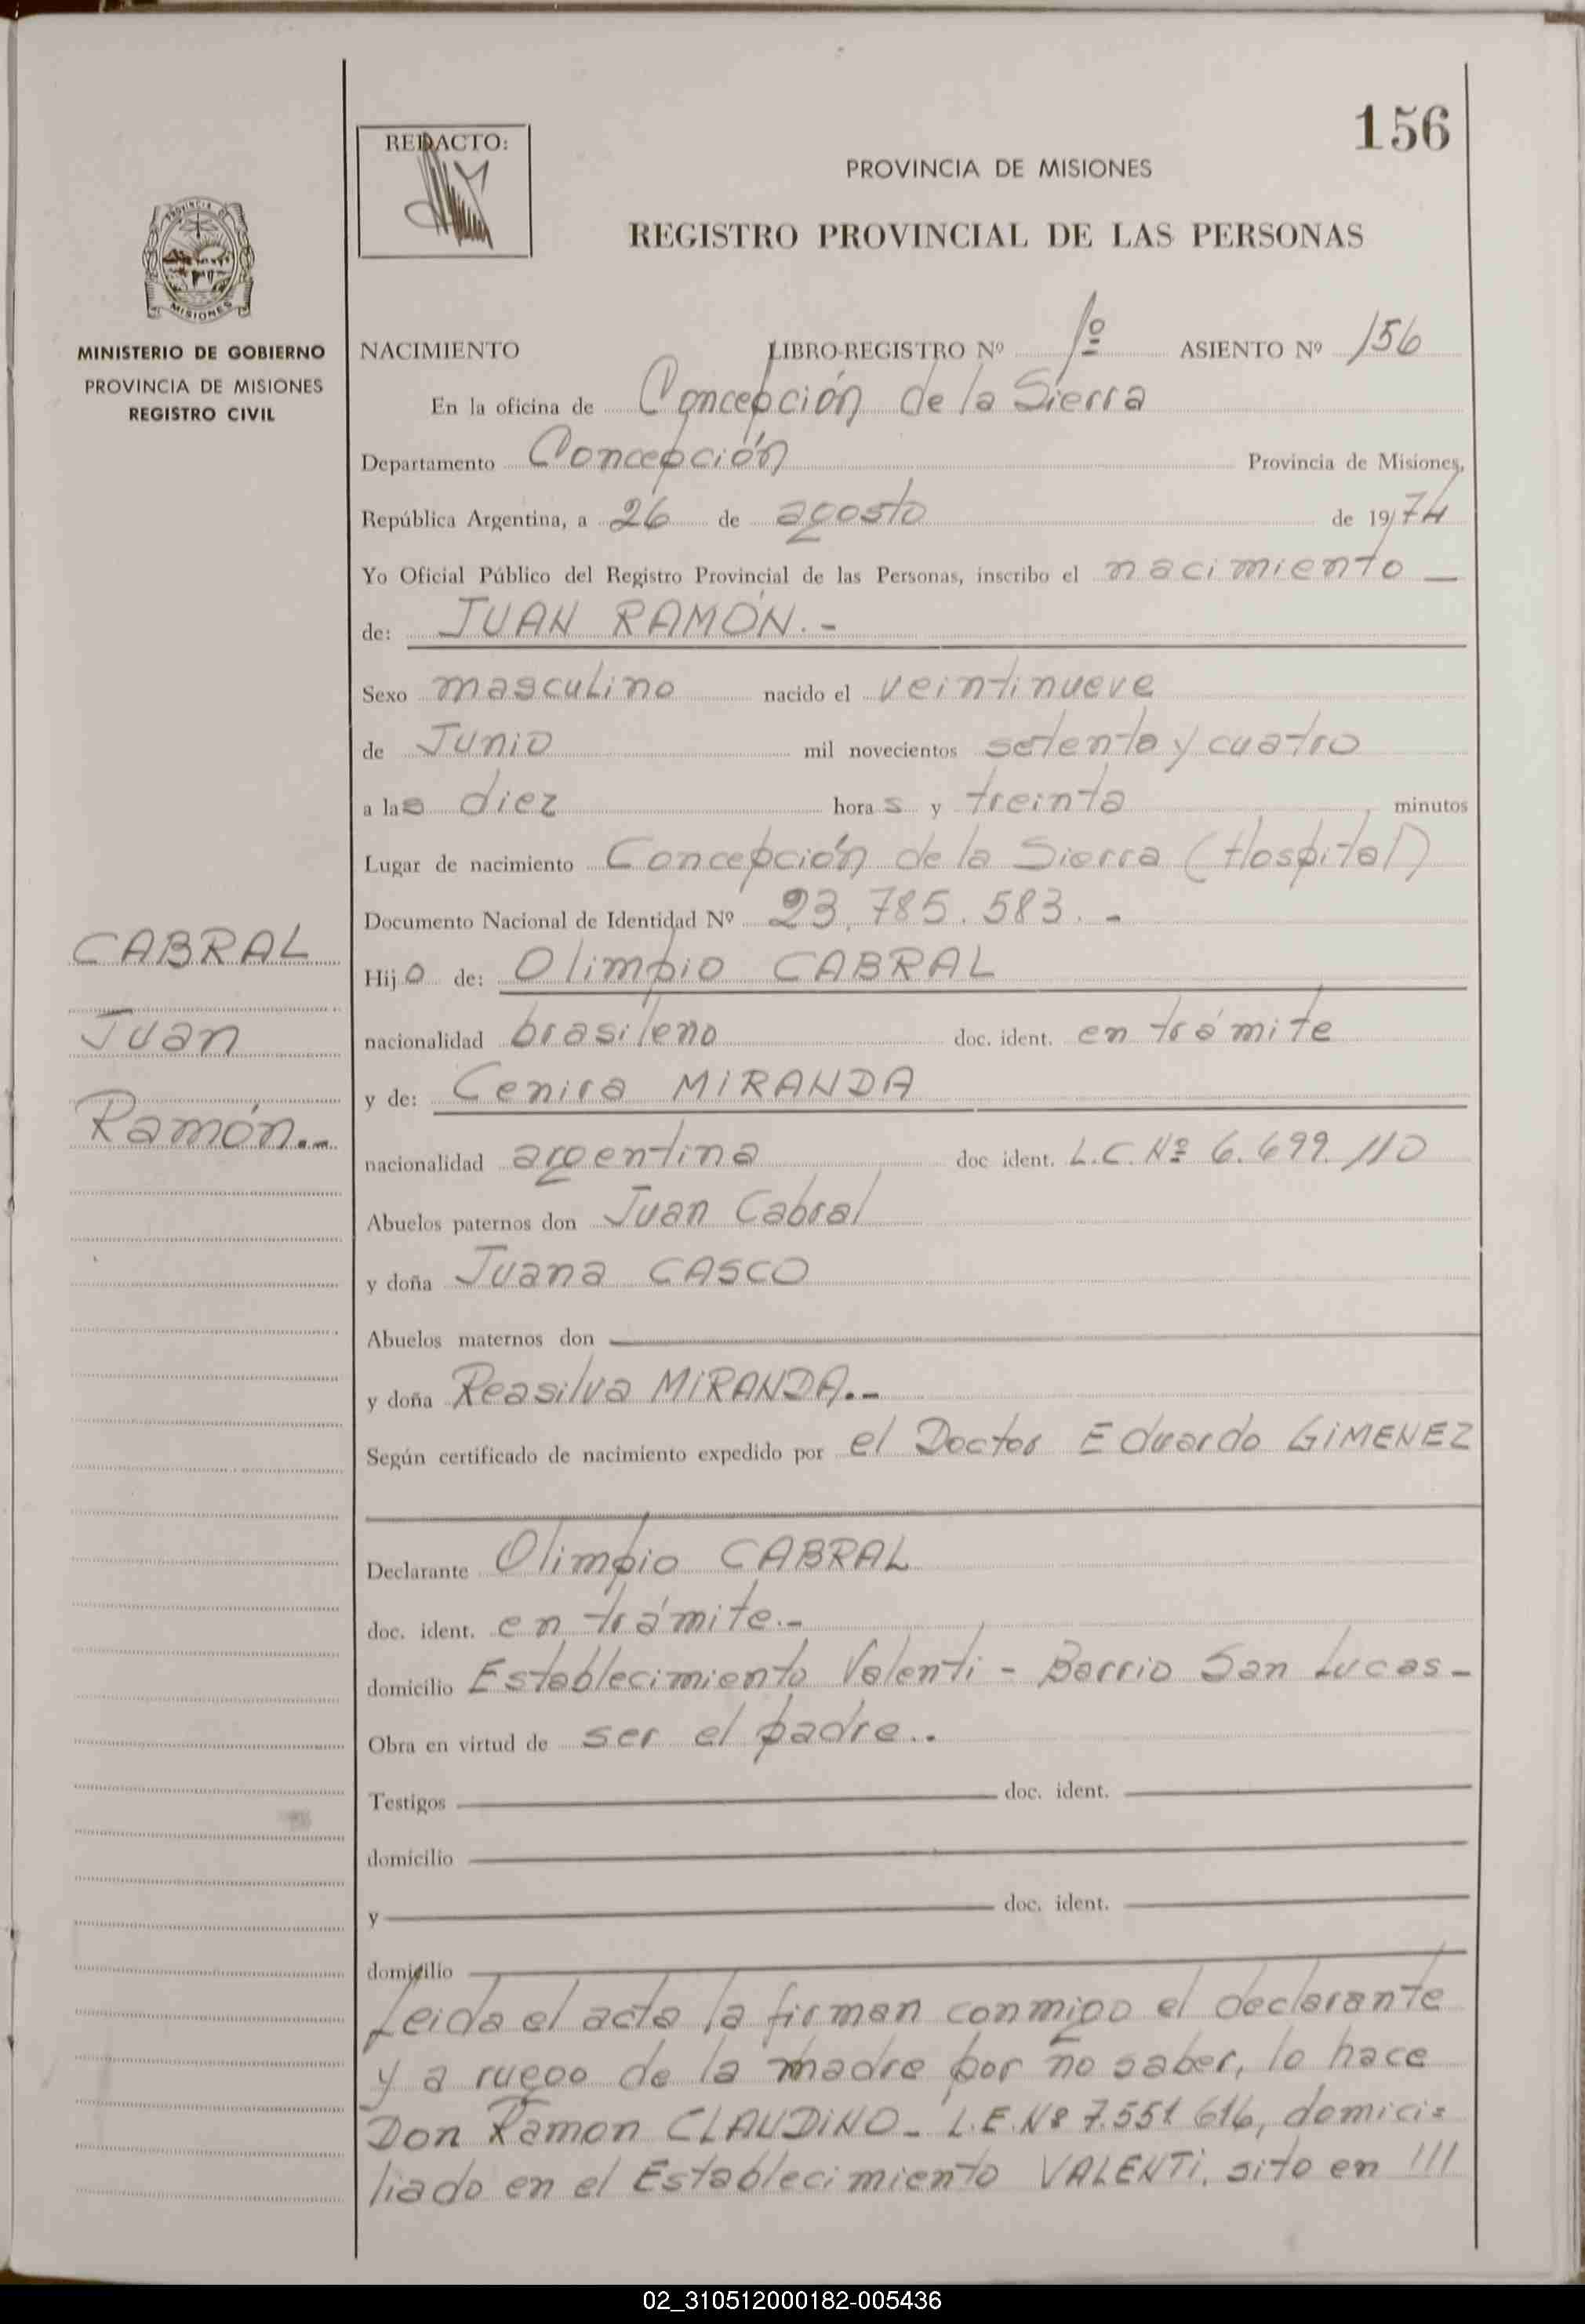 156
REDACTO:
PROVINCIA DE MISIONES
REGISTRO PROVINCIAL DE LAS PERSONAS
PROVINCIA DE
MISIONES
MINISTERIO DE GOBIERNO
PROVINCIA DE MISIONES
REGISTRO CIVIL
NACIMIENTO LIBRO-REGISTRO Nº 1º ASIENTO Nº 156
En la oficina de Concepción de la Sierra
Departamento Concepción Provincia de Misiones,
República Argentina, a 26 de agosto de 19/74
Yo Oficial Público del Registro Provincial de las Personas, inscribo el nacimiento —
de: JUAN RAMÓN.-
Sexo masculino nacido el veintinueve
de Junio mil novecientos setenta y cuatro
a las diez horas y treinta minutos
Lugar de nacimiento Concepción de la Sierra (Hospital)
Documento Nacional de Identidad Nº 23.785.583.-
CABRAL
Juan
Ramón.-
Hijo de: Olimpio CABRAL
nacionalidad brasileno doc. ident. en trámite
y de: Cenira MIRANDA
nacionalidad argentina doc ident. L.C. Nº 6.699.110
Abuelos paternos don Juan Cabral
y doña Juana CASCO
Abuelos maternos don
y doña Reasilva MIRANDA.-
Según certificado de nacimiento expedido por el Doctor Eduardo GIMENEZ
Declarante Olimpio CABRAL
doc. ident. en trámite.-
domicilio Establecimiento Valenti - Barrio San Lucas-
Obra en virtud de ser el padre..
Testigos doc. ident.
domicilio
y doc. ident.
domicilio
Leida el acta la firman conmigo el declarante
y a ruego de la madre por no saber, lo hace
Don Ramon CLAUDINO- L.E. Nº 7.551 616, domici=
liado en el Establecimiento VALENTI, sito en ///
02_310512000182-005436